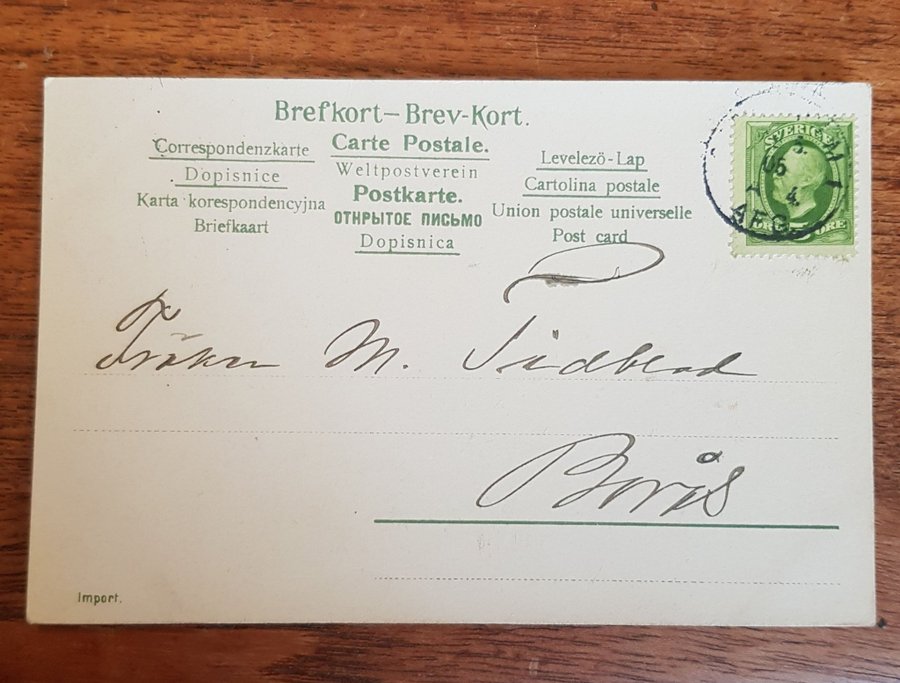 Brefkort—Brev-Kort.
Correspondenzkarte
Dopisnice
Karta korespondencyjna
Briefkaart
Carte Postale.
Weltpostverein
Postkarte.
ОТКРЫТОЕ ПИСЬМО
Dopisnica
Levelezö-Lap
Cartolina postale
Union postale universelle
Post card
SVERIGE
ÖRE
Fröken M. Lindblad
Borås
Import.